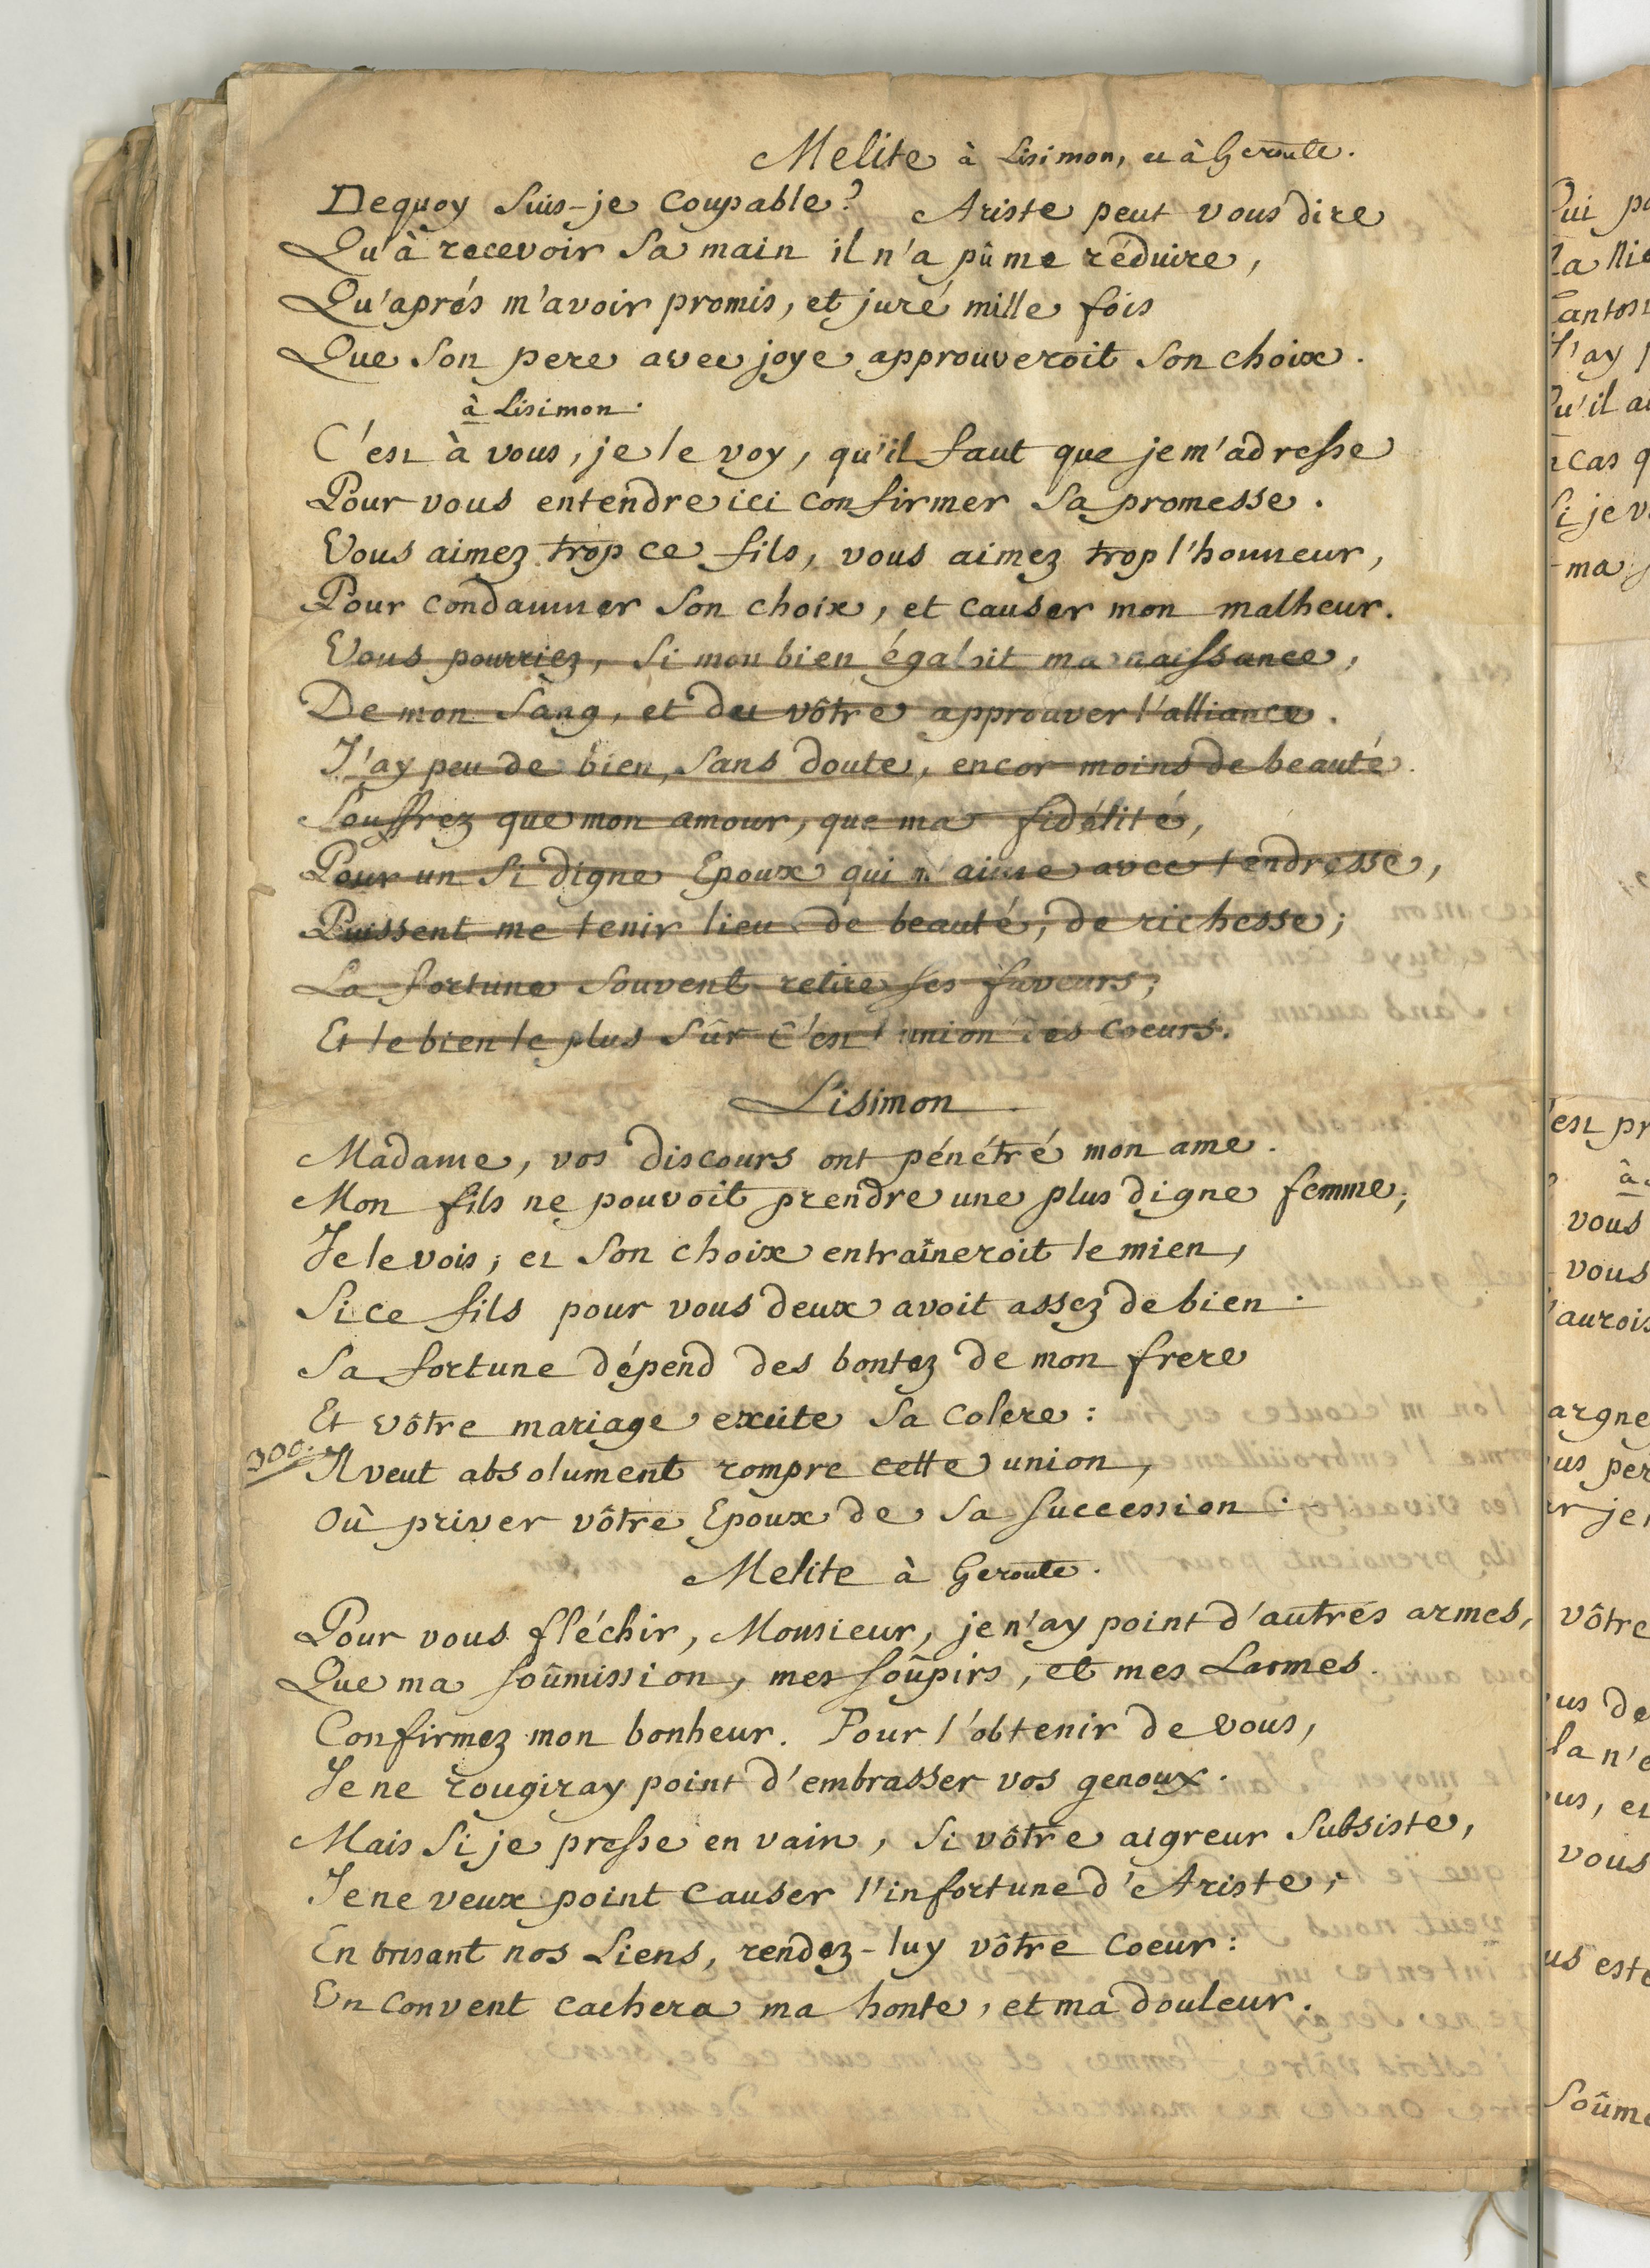 Melite à Lisimon, et à Geronte.
Dequoy suis-je coupable? Ariste peut vous dire
Qu'à recevoir sa main il n'a pû me réduire,
Qu'aprés m'avoir promis, et juré mille fois
Que son pere avec joye approuveroit son choix.
à Lisimon.
C'est à vous, je le voy, qu'il faut que je m'adresse
Pour vous entendre ici confirmer sa promesse.
Vous aimez trop ce fils, vous aimez trop l'honneur,
Pour condamner son choix, et causer mon malheur.
Vous pourriez, si mon bien égaloit ma naissance,
De mon sang, et du vôtre approuver l'alliance.
J'ay peu de bien, sans doute, encor moins de beauté.
Souffrez que mon amour, que ma fidélité,
Pour un si digne Epoux qui m'aime avec tendresse,
Puissent me tenir lieu de beauté, de richesse;
La fortune souvent retire ses faveurs;
Et le bien le plus sûr c'est l'union des coeurs.
Lisimon
Madame, vos discours ont pénétré mon ame.
Mon fils ne pouvoit prendre une plus digne femme;
Je le vois; et son choix entraîneroit le mien,
Si ce fils pour vous deux avoit assez de bien.
Sa fortune dépend des bontez de mon frere
Et vôtre mariage excite sa colere:
300. Il veut absolument rompre cette union,
Où priver vôtre Epoux de sa succession.
Melite à Geronte.
Pour vous fléchir, Monsieur, je n'ay point d'autres armes,
Que ma soûmission, mes soûpirs, et mes Larmes.
Confirmez mon bonheur. Pour l'obtenir de vous,
Je ne rougiray point d'embrasser vos genoux.
Mais si je presse en vain, si vôtre aigreur subsiste,
Je ne veux point causer l'infortune d'Ariste;
En brisant nos Liens, rendez-luy vôtre coeur:
Un convent cachera ma honte, et ma douleur.